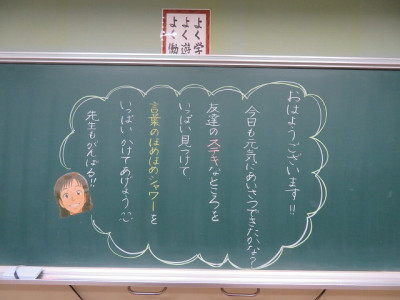 よく学
よく遊
よく働
おはようございます!!
今日も元気にあいさつできたかな?
友達のステキなところを
いっぱい見つけて
言葉のほめほめシャワーを
いっぱいかけてあげよう
先生もがんばる!!